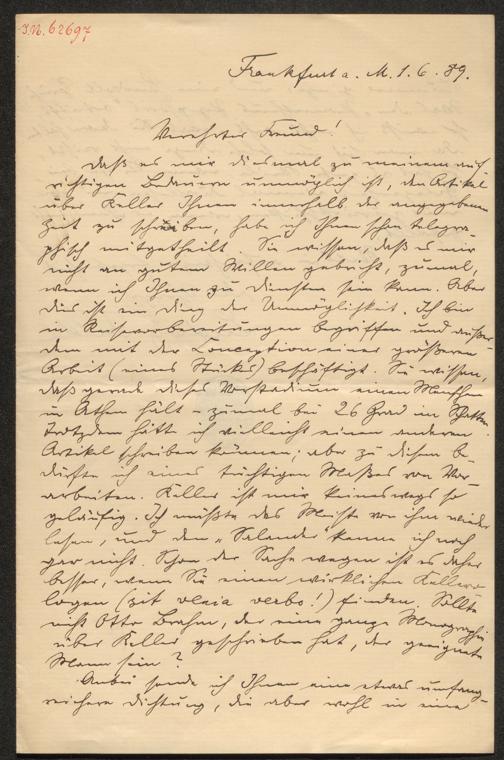 J.N. 62697
Frankfurt a. M. 1. 6. 89.
Verehrter Freund!
Daß es mir diesmal zu meinem auf-
richtigen Bedauern unmöglich ist, den Artikel
über Keller Ihnen innerhalb der angegebenen
Zeit zu schreiben, habe ich Ihnen schon telegra-
phisch mitgetheilt. Sie wissen, daß es mir
nicht an gutem Willen gebricht, zumal,
wenn ich Ihnen zu Diensten sein kann. Aber
dies ist ein Ding der Unmöglichkeit. Ich bin
in Reisevorbereitungen begriffen und außer-
dem mit der Conception einer größeren
Arbeit (eines Stückes) beschäftigt. Sie wissen,
daß gerade dieses Vorstadium einen Menschen
in Athem hält – zumal bei 26 Grad im Schatten.
Trotzdem hätte ich vielleicht einen anderen
Artikel schreiben können; aber zu diesem be-
dürfte ich eines tüchtigen Maßes von Vor-
arbeiten. Keller ist mir keineswegs so
geläufig. Ich müßte das Meiste von ihm wieder
lesen, und den „Salander" kenne ich noch
gar nicht. Schon der Sache wegen ist es daher
besser, wenn Sie einen wirklichen Kellero-
logen (sit venia verbo!) finden. Sollte
nicht Otto Brahm, der eine ganze Monographie
über Keller geschrieben hat, der geeignete
Mann sein?
Anbei sende ich Ihnen eine etwas umfang-
reichere Dichtung, die aber wohl in eine